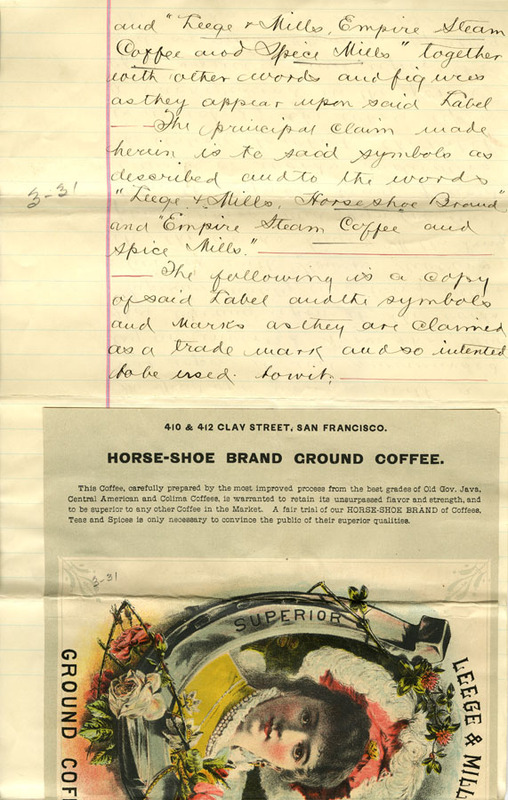 and "Leege & Mills, Empire Steam
Coffee and Spice Mills" together
with other words and figures
as they appear upon said Label
The principal claim made
herein is to said symbols as
described and to the words
3-31
"Leege & Mills, Horseshoe Brand"
and "Empire Steam Coffee and
Spice Mills."
The following is a copy
of said Label and the symbols
and Marks as they are claimed
as a trade mark and so intented
to be used. towit:
410 & 412 CLAY STREET, SAN FRANCISCO.
HORSE-SHOE BRAND GROUND COFFEE.
This Coffee, carefully prepared by the most improved process from the best grades of Old Gov. Java,
Central American and Colima Coffees, is warranted to retain its unsurpassed flavor and strength, and
to be superior to any other Coffee in the Market. A fair trial of our HORSE-SHOE BRAND of Coffees,
Teas and Spices is only necessary to convince the public of their superior qualities.
3-31
SUPERIOR
GROUND COF
LEEGE & MILL